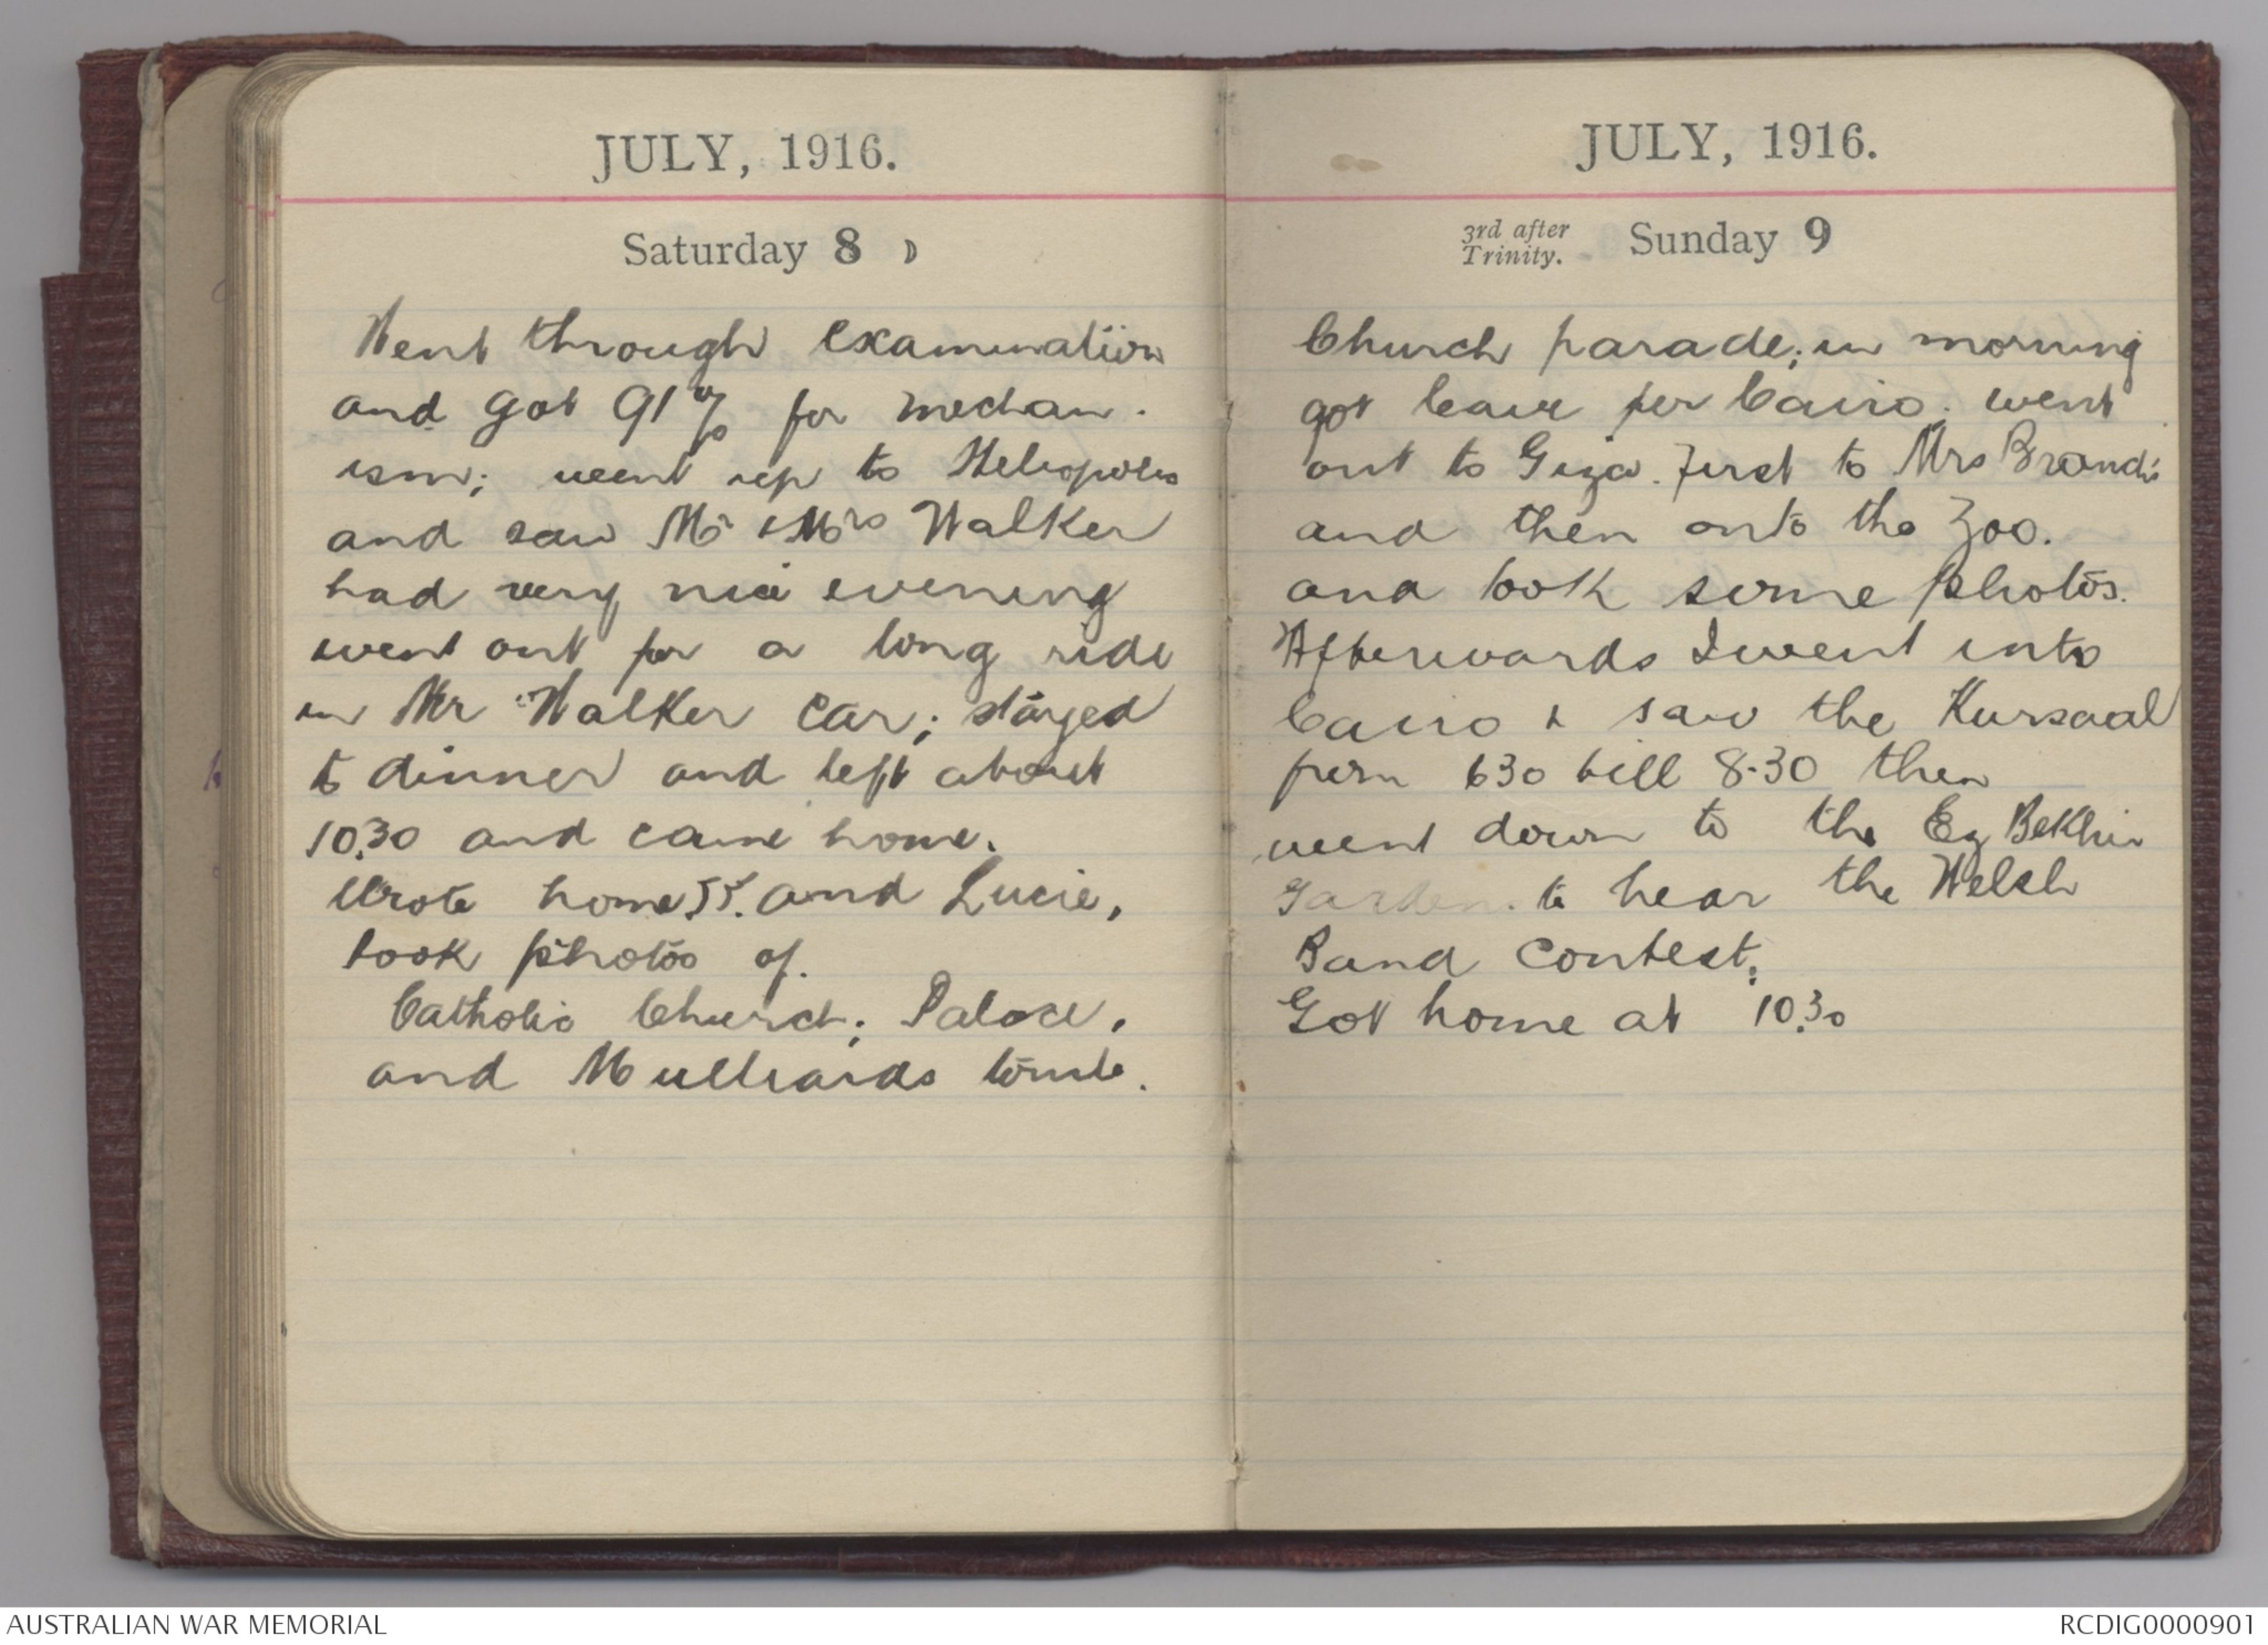 JULY, 1916.
Saturday 8
Went through examination
and got 91% for mechan-
ism; went up to Heliopolis
and saw Mr & Mrs Walker
had very nice evening
went out for a long ride
in Mr Walker car; stayed
to dinner and left about
10.30 and came home.
Wrote home and Lucie,
took photos of.
Catholic Church; Palace,
and tomb.
JULY, 1916.
3rd after
Trinity.
Sunday 9
Church parade; in morning
got leave for Cairo; went
out to Giza. First to Mrs Brandis
and then onto the Zoo.
and took some photos.
Afterwards I went into
Cairo & saw the Kursaal
from 630 till 8.30 then
went down to the Ez Bekhir
Garden. to hear the Welsh
Band Contest.
Got home at 10.30
AUSTRALIAN WAR MEMORIAL
RCDIG0000901